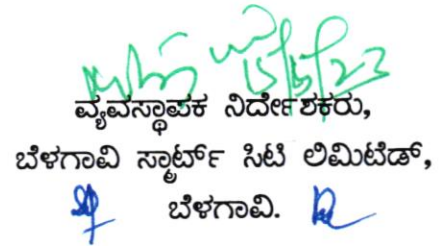 15/5/23
ವ್ಯವಸ್ಥಾಪಕ ನಿರ್ದೇಶಕರು,
ಬೆಳಗಾವಿ ಸ್ಮಾರ್ಟ್ ಸಿಟಿ ಲಿಮಿಟೆಡ್,
ಬೆಳಗಾವಿ.